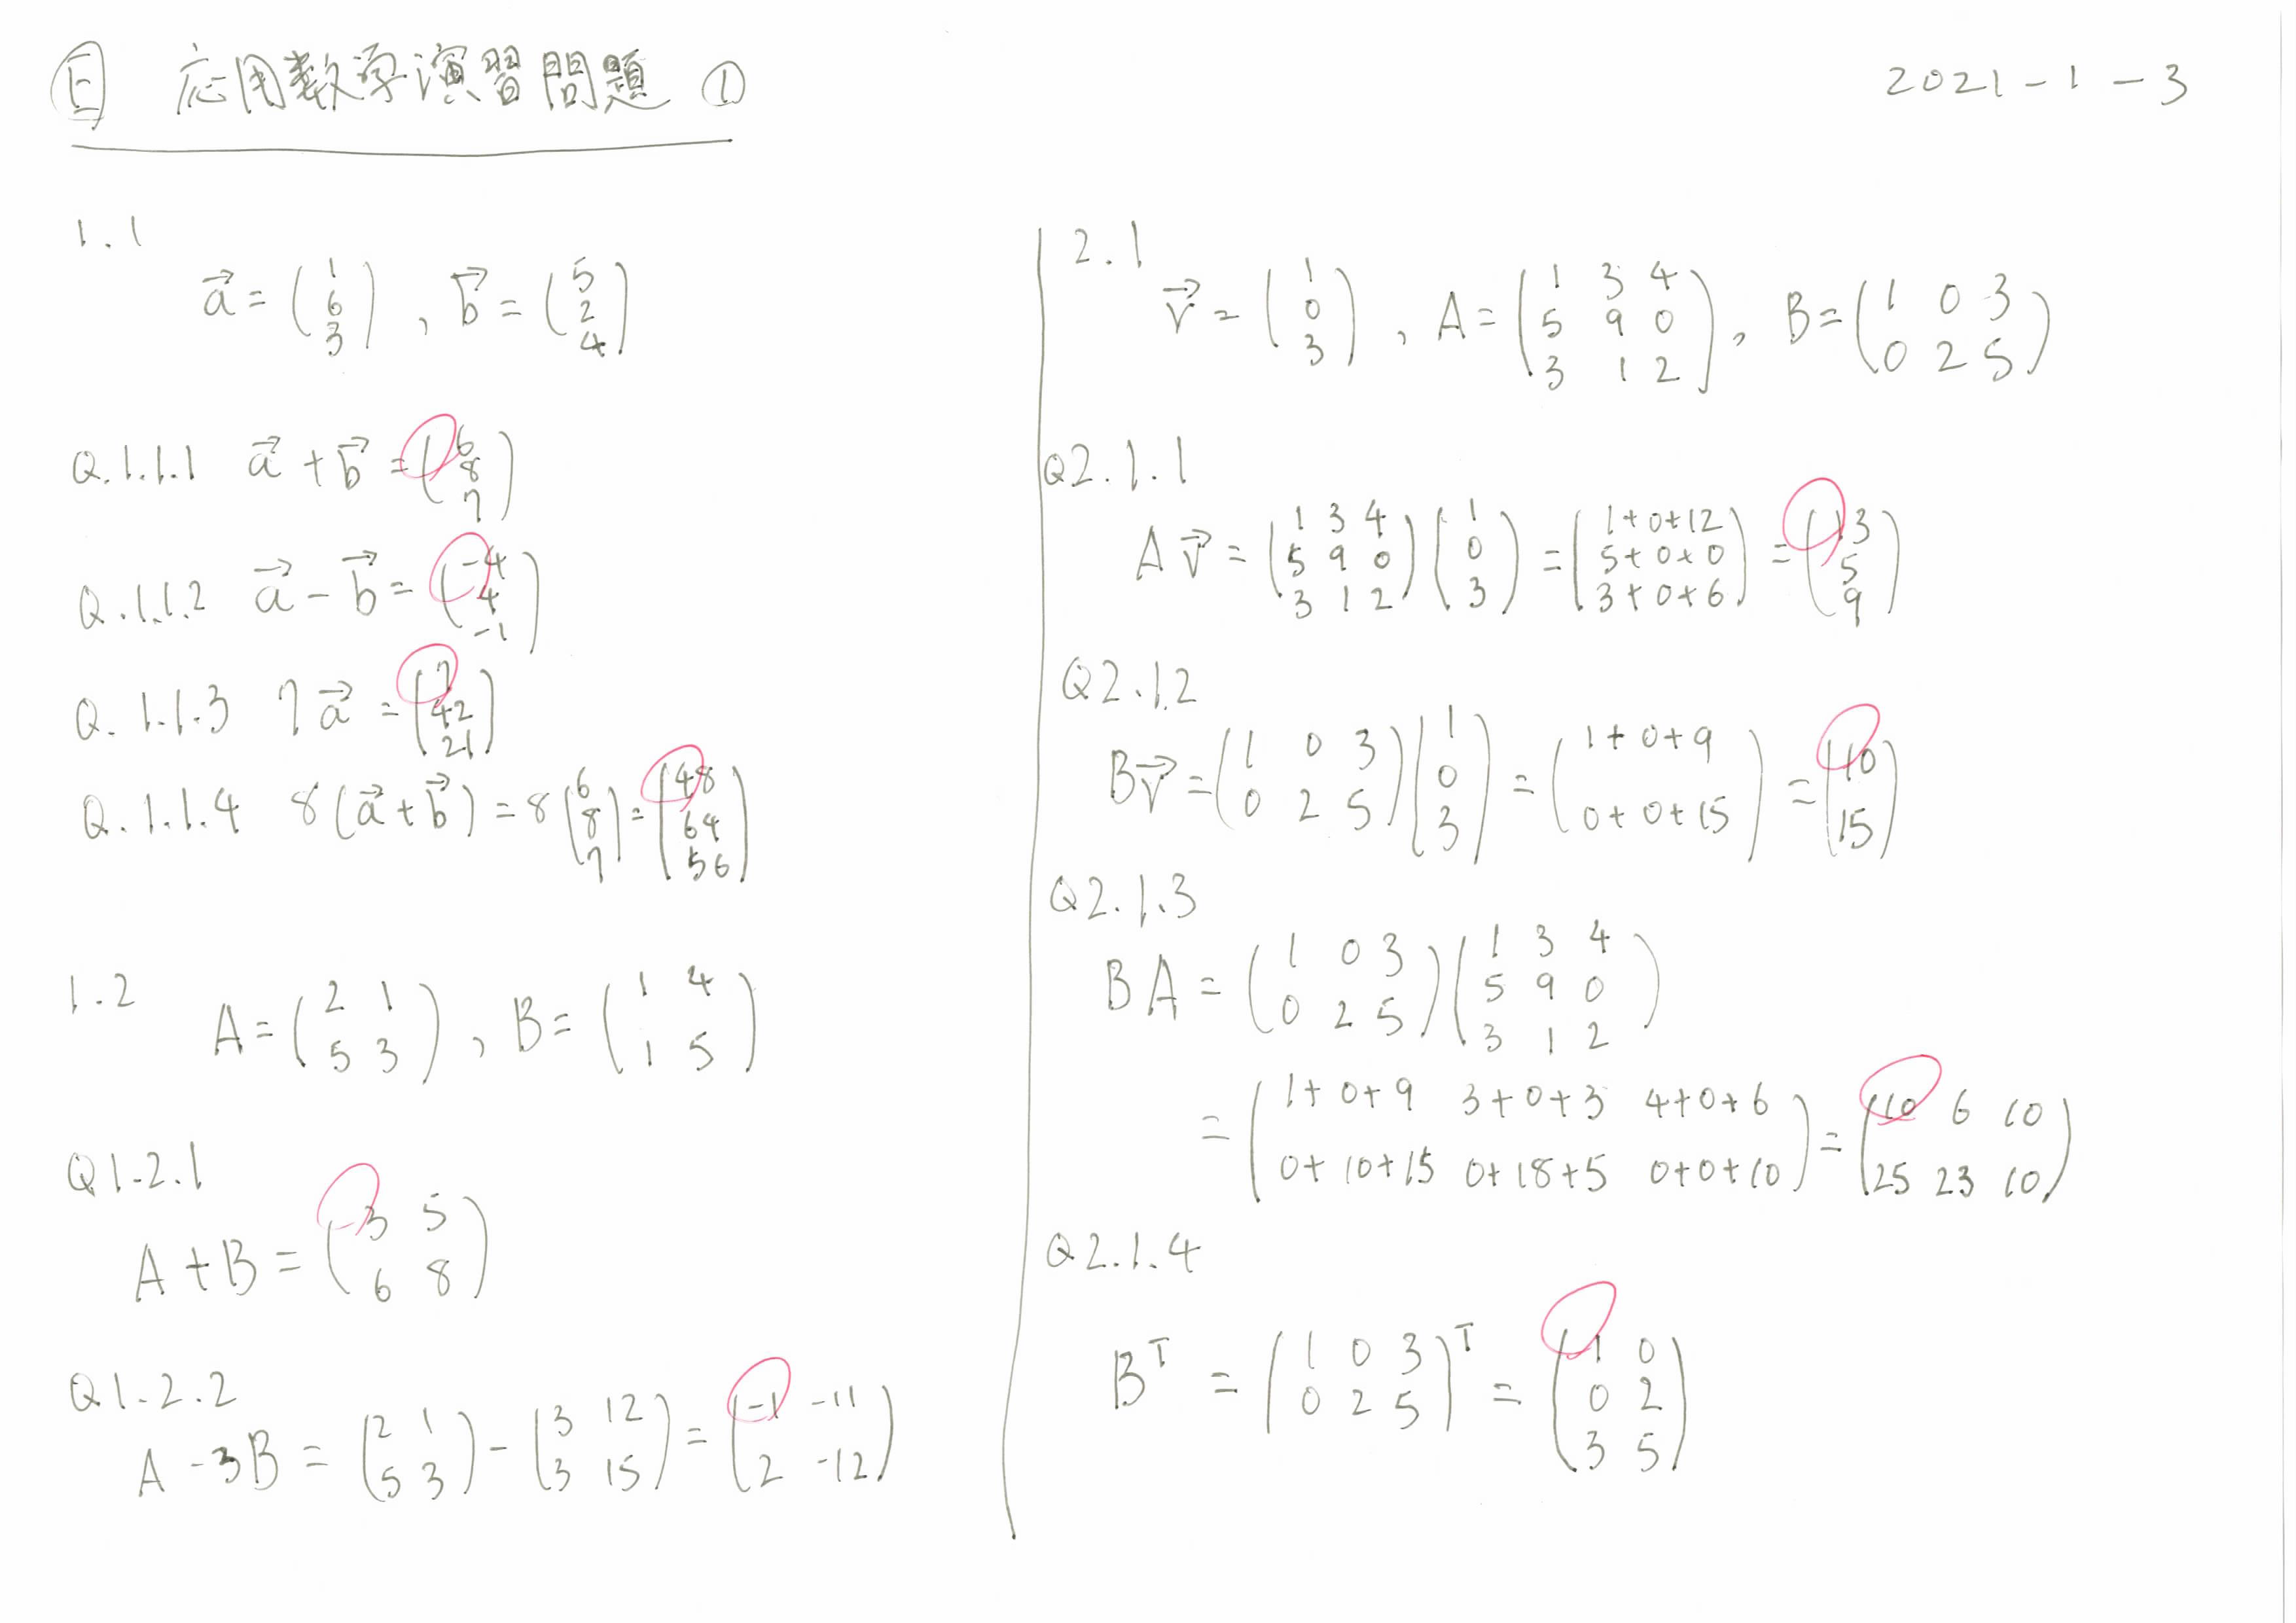 Ⓔ 応用数学演習問題 ① 2021-1-3
1.1
a⃗ = (1 6 3), b⃗ = (5 2 4)
Q.1.1.1 a⃗ + b⃗ = (6 8 7)
Q.1.1.2 a⃗ - b⃗ = (-4 4 -1)
Q.1.1.3 7a⃗ = (7 42 21)
Q.1.1.4 8(a⃗ + b⃗) = 8(6 8 7) = (48 64 56)
1.2
A = (2 1
5 3), B = (1 4
1 5)
Q1.2.1
A + B = (3 5
6 8)
Q1.2.2
A - 3B = (2 1
5 3) - (3 12
3 15) = (-1 -11
2 -12)
2.1
v⃗ = (1 0 3), A = (1 3 4
5 9 0
3 1 2), B = (1 0 3
0 2 5)
Q2.1.1
Av⃗ = (1 3 4
5 9 0
3 1 2)(1 0 3) = (1+0+12
5+0+0
3+0+6) = (13 5 9)
Q2.1.2
Bv⃗ = (1 0 3
0 2 5)(1 0 3) = (1+0+9
0+0+15) = (10 15)
Q2.1.3
BA = (1 0 3
0 2 5)(1 3 4
5 9 0
3 1 2)
= (1+0+9 3+0+3 4+0+6
0+10+15 0+18+5 0+0+10) = (10 6 10
25 23 10)
Q2.1.4
Bᵀ = (1 0 3
0 2 5)ᵀ = (1 0
0 2
3 5)